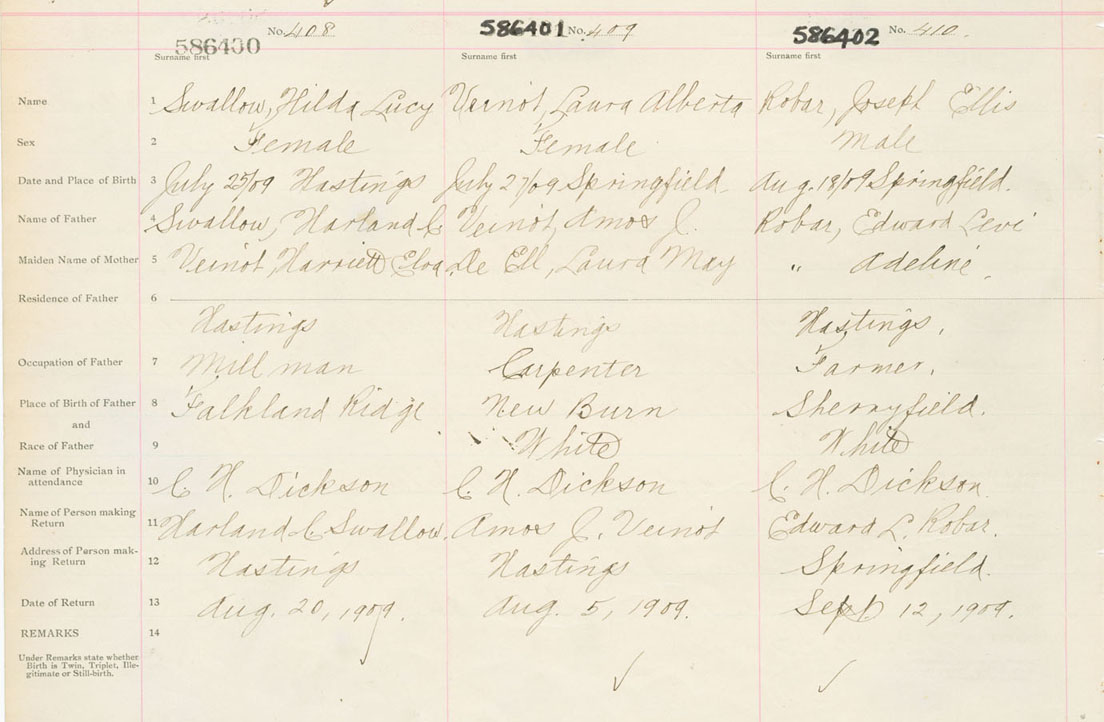 No. 408 No. 409 No. 410.
586400 586401 586402
Surname first Surname first Surname first
Name 1 Swallow, Hilda Lucy Veinot, Laura Alberta Robar, Joseph Ellis
Sex 2 Female Female Male
Date and Place of Birth 3 July 25/09 Hastings July 27/09 Springfield. Aug. 18/09 Springfield.
Name of Father 4 Swallow, Harland C. Veinot, Amos J. Robar, Edward Levi
Maiden Name of Mother 5 Veinot, Harriett De Ell, Laura May " Adeline
Residence of Father 6
Hastings Hastings Hastings.
Occupation of Father 7 Mill man Carpenter Farmer.
Place of Birth of Father 8 Falkland Ridge New Burn Sherryfield.
and
Race of Father 9 White White
Name of Physician in
attendance 10 C. H. Dickson C. H. Dickson C. H. Dickson.
Name of Person making
Return 11 Harland C. Swallow. Amos J. Veinot Edward L. Robar.
Address of Person mak-
ing Return 12 Hastings Hastings Springfield.
Date of Return 13 Aug. 20, 1909. Aug. 5, 1909. Sept 12, 1909.
REMARKS 14
Under Remarks state whether
Birth is Twin, Triplet, Ille-
gitimate or Still-birth.